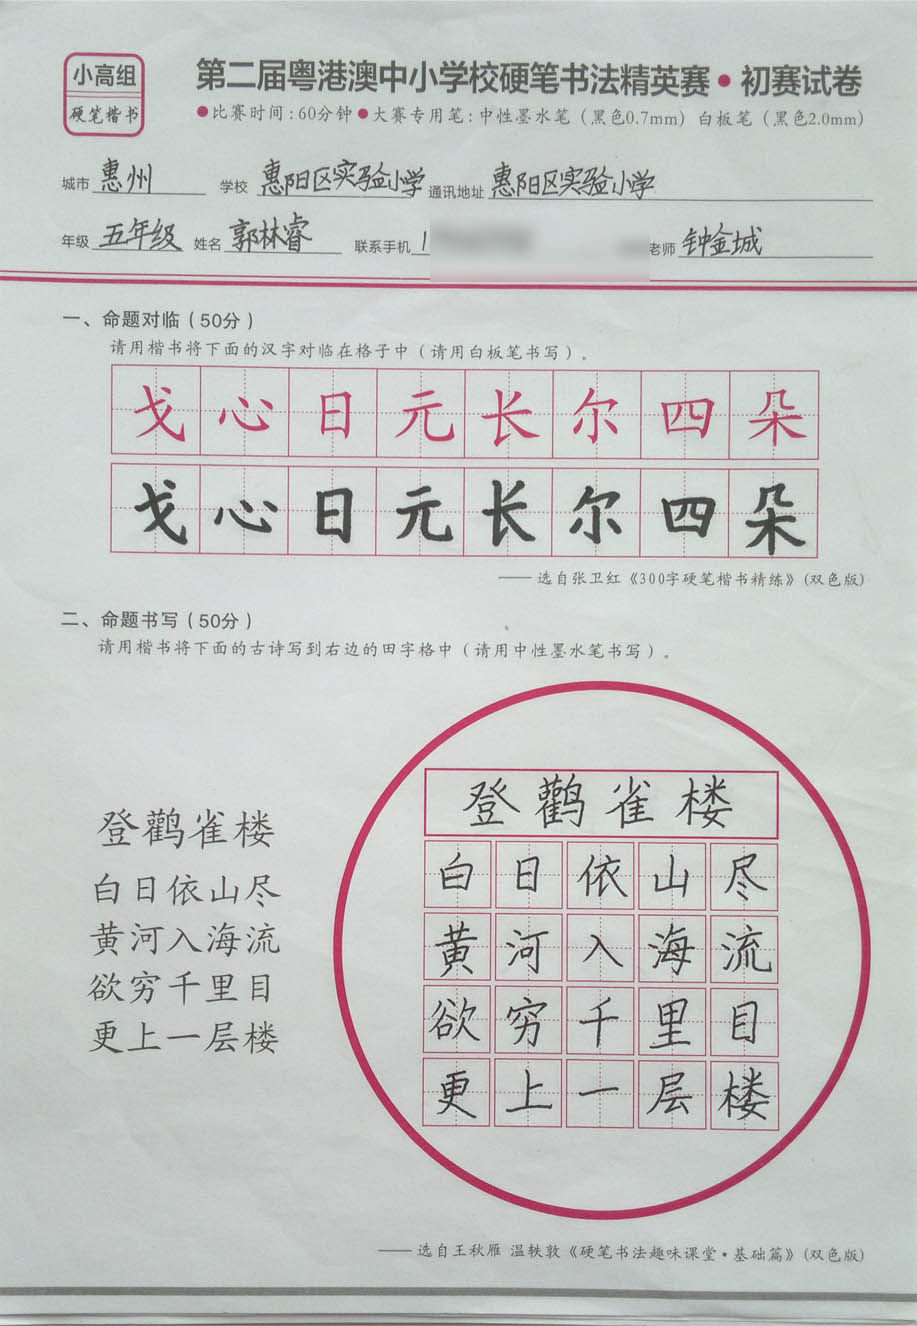 小高组
硬笔楷书
第二届粤港澳中小学校硬笔书法精英赛·初赛试卷
●比赛时间:60分钟●大赛专用笔:中性墨水笔（黑色0.7mm）白板笔（黑色2.0mm）
城市 惠州 学校 惠阳区实验小学 通讯地址 惠阳区实验小学
年级 五年级 姓名 郭林睿 联系手机 1 老师 钟金城
一、命题对临（50分）
请用楷书将下面的汉字对临在格子中（请用白板笔书写）。
戈心日元长尔四朵
戈心日元长尔四朵
——选自张卫红《300字硬笔楷书精练》(双色版)
二、命题书写（50分）
请用楷书将下面的古诗写到右边的田字格中（请用中性墨水笔书写）。
登鹳雀楼
白日依山尽
黄河入海流
欲穷千里目
更上一层楼
登鹳雀楼
白日依山尽
黄河入海流
欲穷千里目
更上一层楼
——选自王秋雁 温轶敦《硬笔书法趣味课堂·基础篇》(双色版)